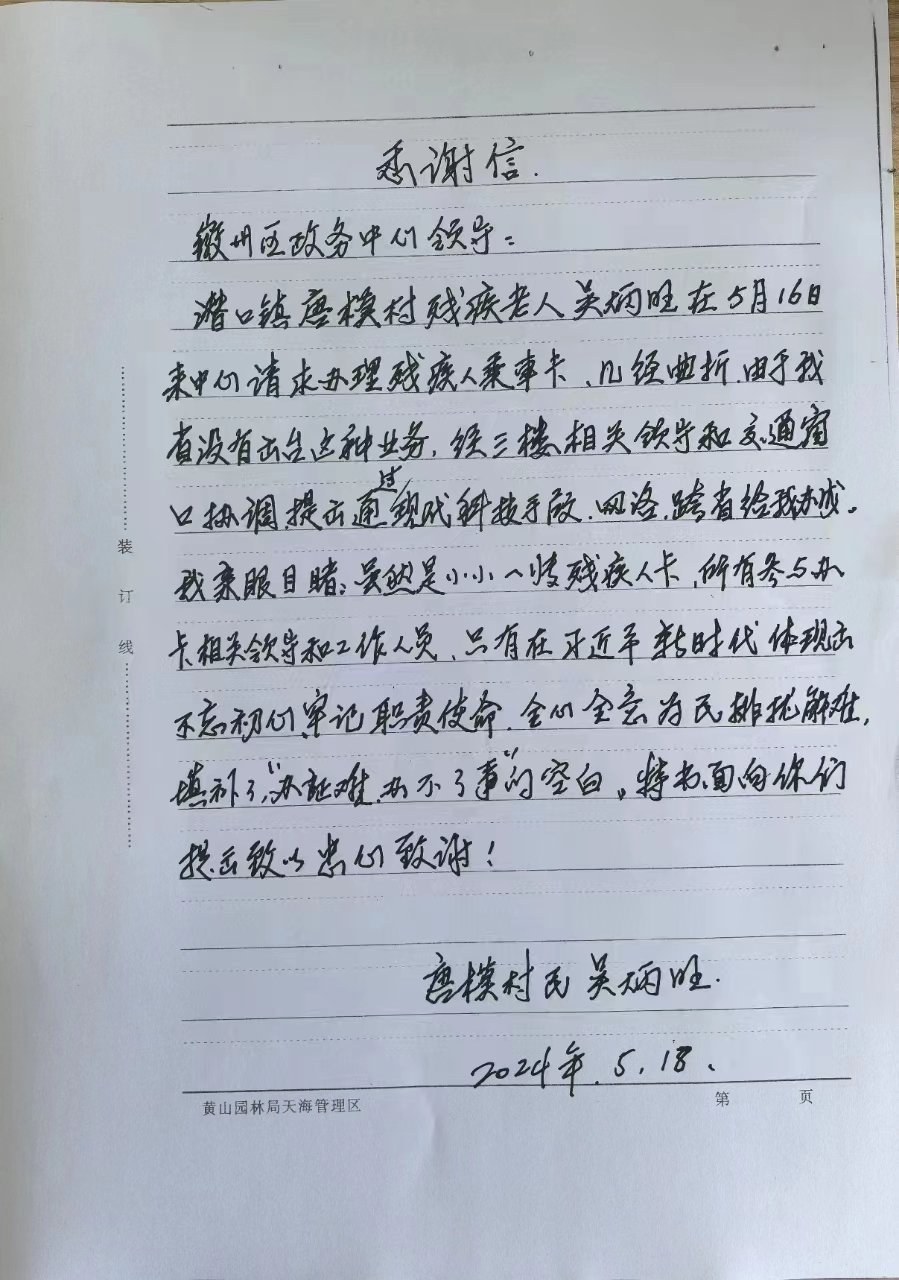 感谢信.
徽州区政务中心领导：
潜口镇唐模村残疾老人吴炳旺在5月16日
来中心请求办理残疾人乘车卡、几经曲折.由于我
省没有出台这种业务,经三楼相关领导和交通窗
口协调,提出通过现代科技手段.网洛.跨省给我办成。
我亲眼目睹:虽然是小小一张残疾人卡,所有参与办
卡相关领导和工作人员、只有在习近平新时代体现出
不忘初心,牢记职责使命.全心全意为民排忧解难,
填补了,“办证难.办不了事”的空白。特书面向你们
提出致以忠心致谢!
唐模村民吴炳旺.
2024年.5.18.
装
订
线
黄山园林局天海管理区
第 页